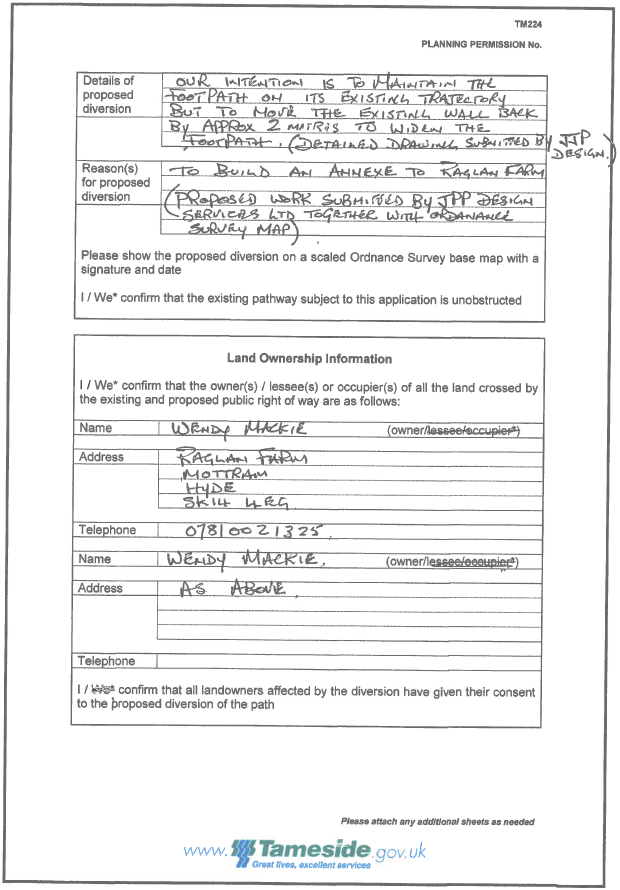 TM224
PLANNING PERMISSION No.
Details of proposed diversion
OUR INTENTION IS TO MAINTAIN THE
FOOTPATH ON ITS EXISTING TRAJECTORY
BUT TO MOVE THE EXISTING WALL BACK
BY APPROX 2 METRES TO WIDEN THE
FOOTPATH. (DETAINED DRAWING SUBMITTED BY JJP DESIGN.)
Reason(s) for proposed diversion
TO BUILD AN ANNEXE TO RAGLAN FARM
(PROPOSED WORK SUBMITTED BY JPP DESIGN
SERVICES LTD TOGETHER WITH ORDANANCE
SURVEY MAP)
Please show the proposed diversion on a scaled Ordnance Survey base map with a
signature and date
I / We* confirm that the existing pathway subject to this application is unobstructed
Land Ownership Information
I / We* confirm that the owner(s) / lessee(s) or occupier(s) of all the land crossed by
the existing and proposed public right of way are as follows:
Name WENDY MACKIE (owner/lessee/occupier*)
Address RAGLAN FARM
MOTTRAM
HYDE
SK14 4EG
Telephone 07810021325
Name WENDY MACKIE. (owner/lessee/occupier*)
Address AS ABOVE.
Telephone
I / We* confirm that all landowners affected by the diversion have given their consent
to the proposed diversion of the path
Please attach any additional sheets as needed
www.Tameside.gov.uk
Great lives, excellent services